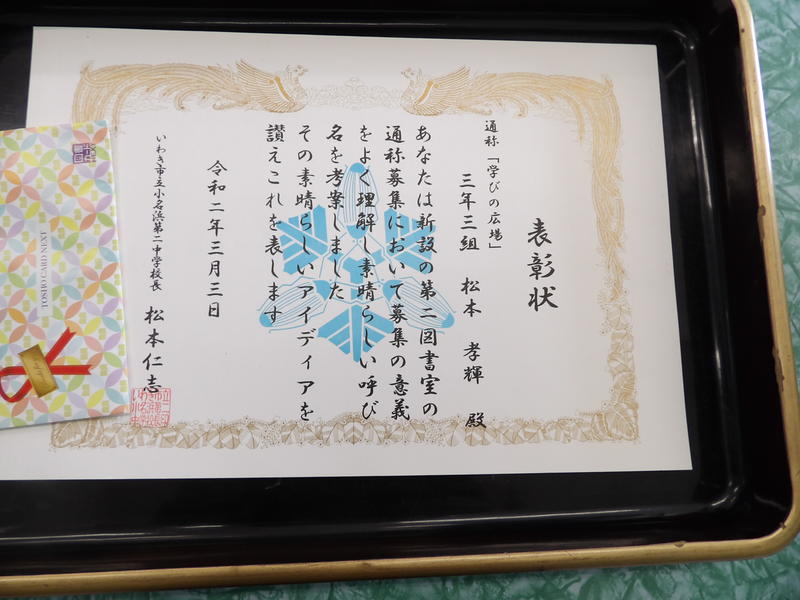 表彰状
通称「学びの広場」
三年三組 松本 孝輝 殿
あなたは新設の第二図書室の
通称募集において募集の意義
をよく理解し素晴らしい呼び
名を考案しました
その素晴らしいアイディアを
讃えこれを表します
令和二年三月三日
いわき市立小名浜第二中学校長 松本仁志
TOSHO CARD NEXT